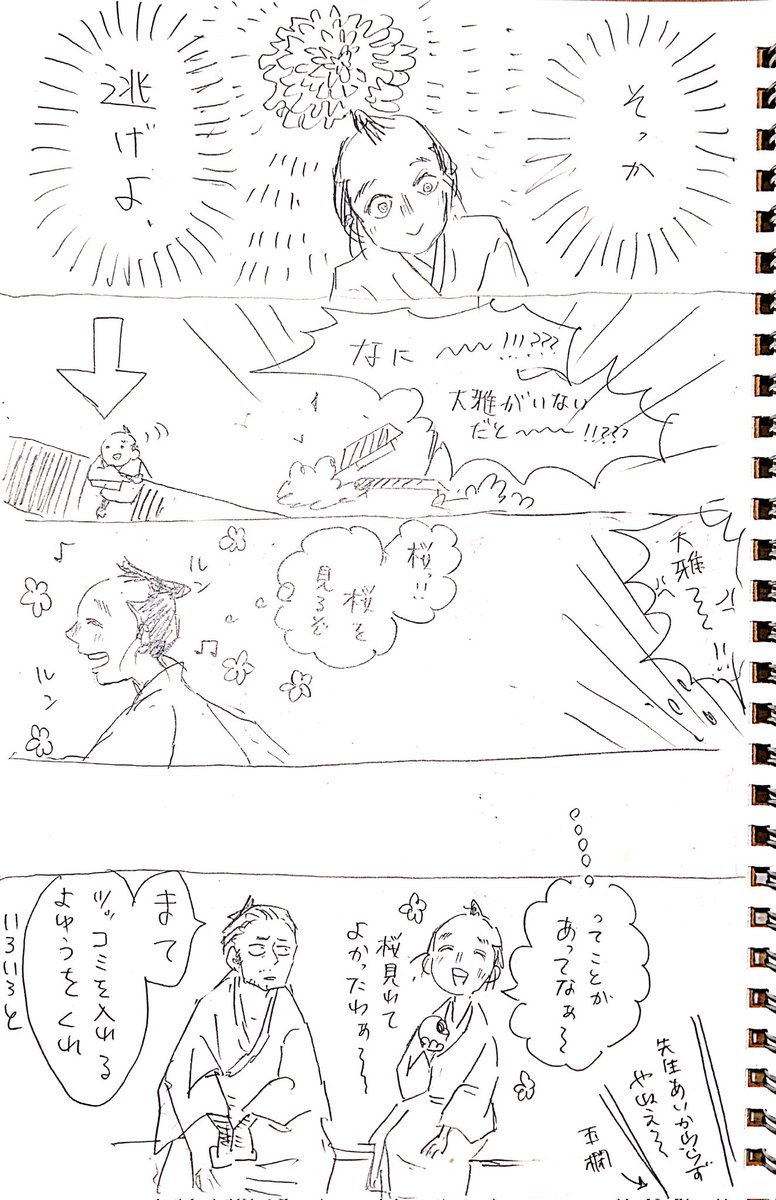 そっか
逃げよ、
なに〜〜!!!???
大雅がいない
だと〜〜!!???
大雅〜〜!!
桜っ!!
桜を
見るぞ
ルン
ルン
ってことが
あってなぁ〜
桜見れて
よかったわぁ〜
まて
ツッコミを入れる
よゆうをくれ
いろいろと
先生あいかわらず
やねえ〜